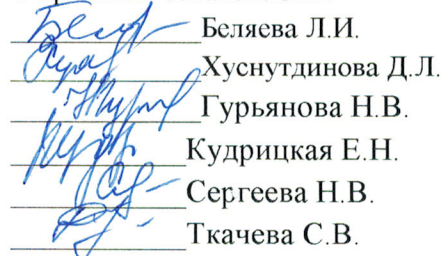 Беляева Л.И.
Хуснутдинова Д.Л.
Гурьянова Н.В.
Кудрицкая Е.Н.
Сергеева Н.В.
Ткачева С.В.